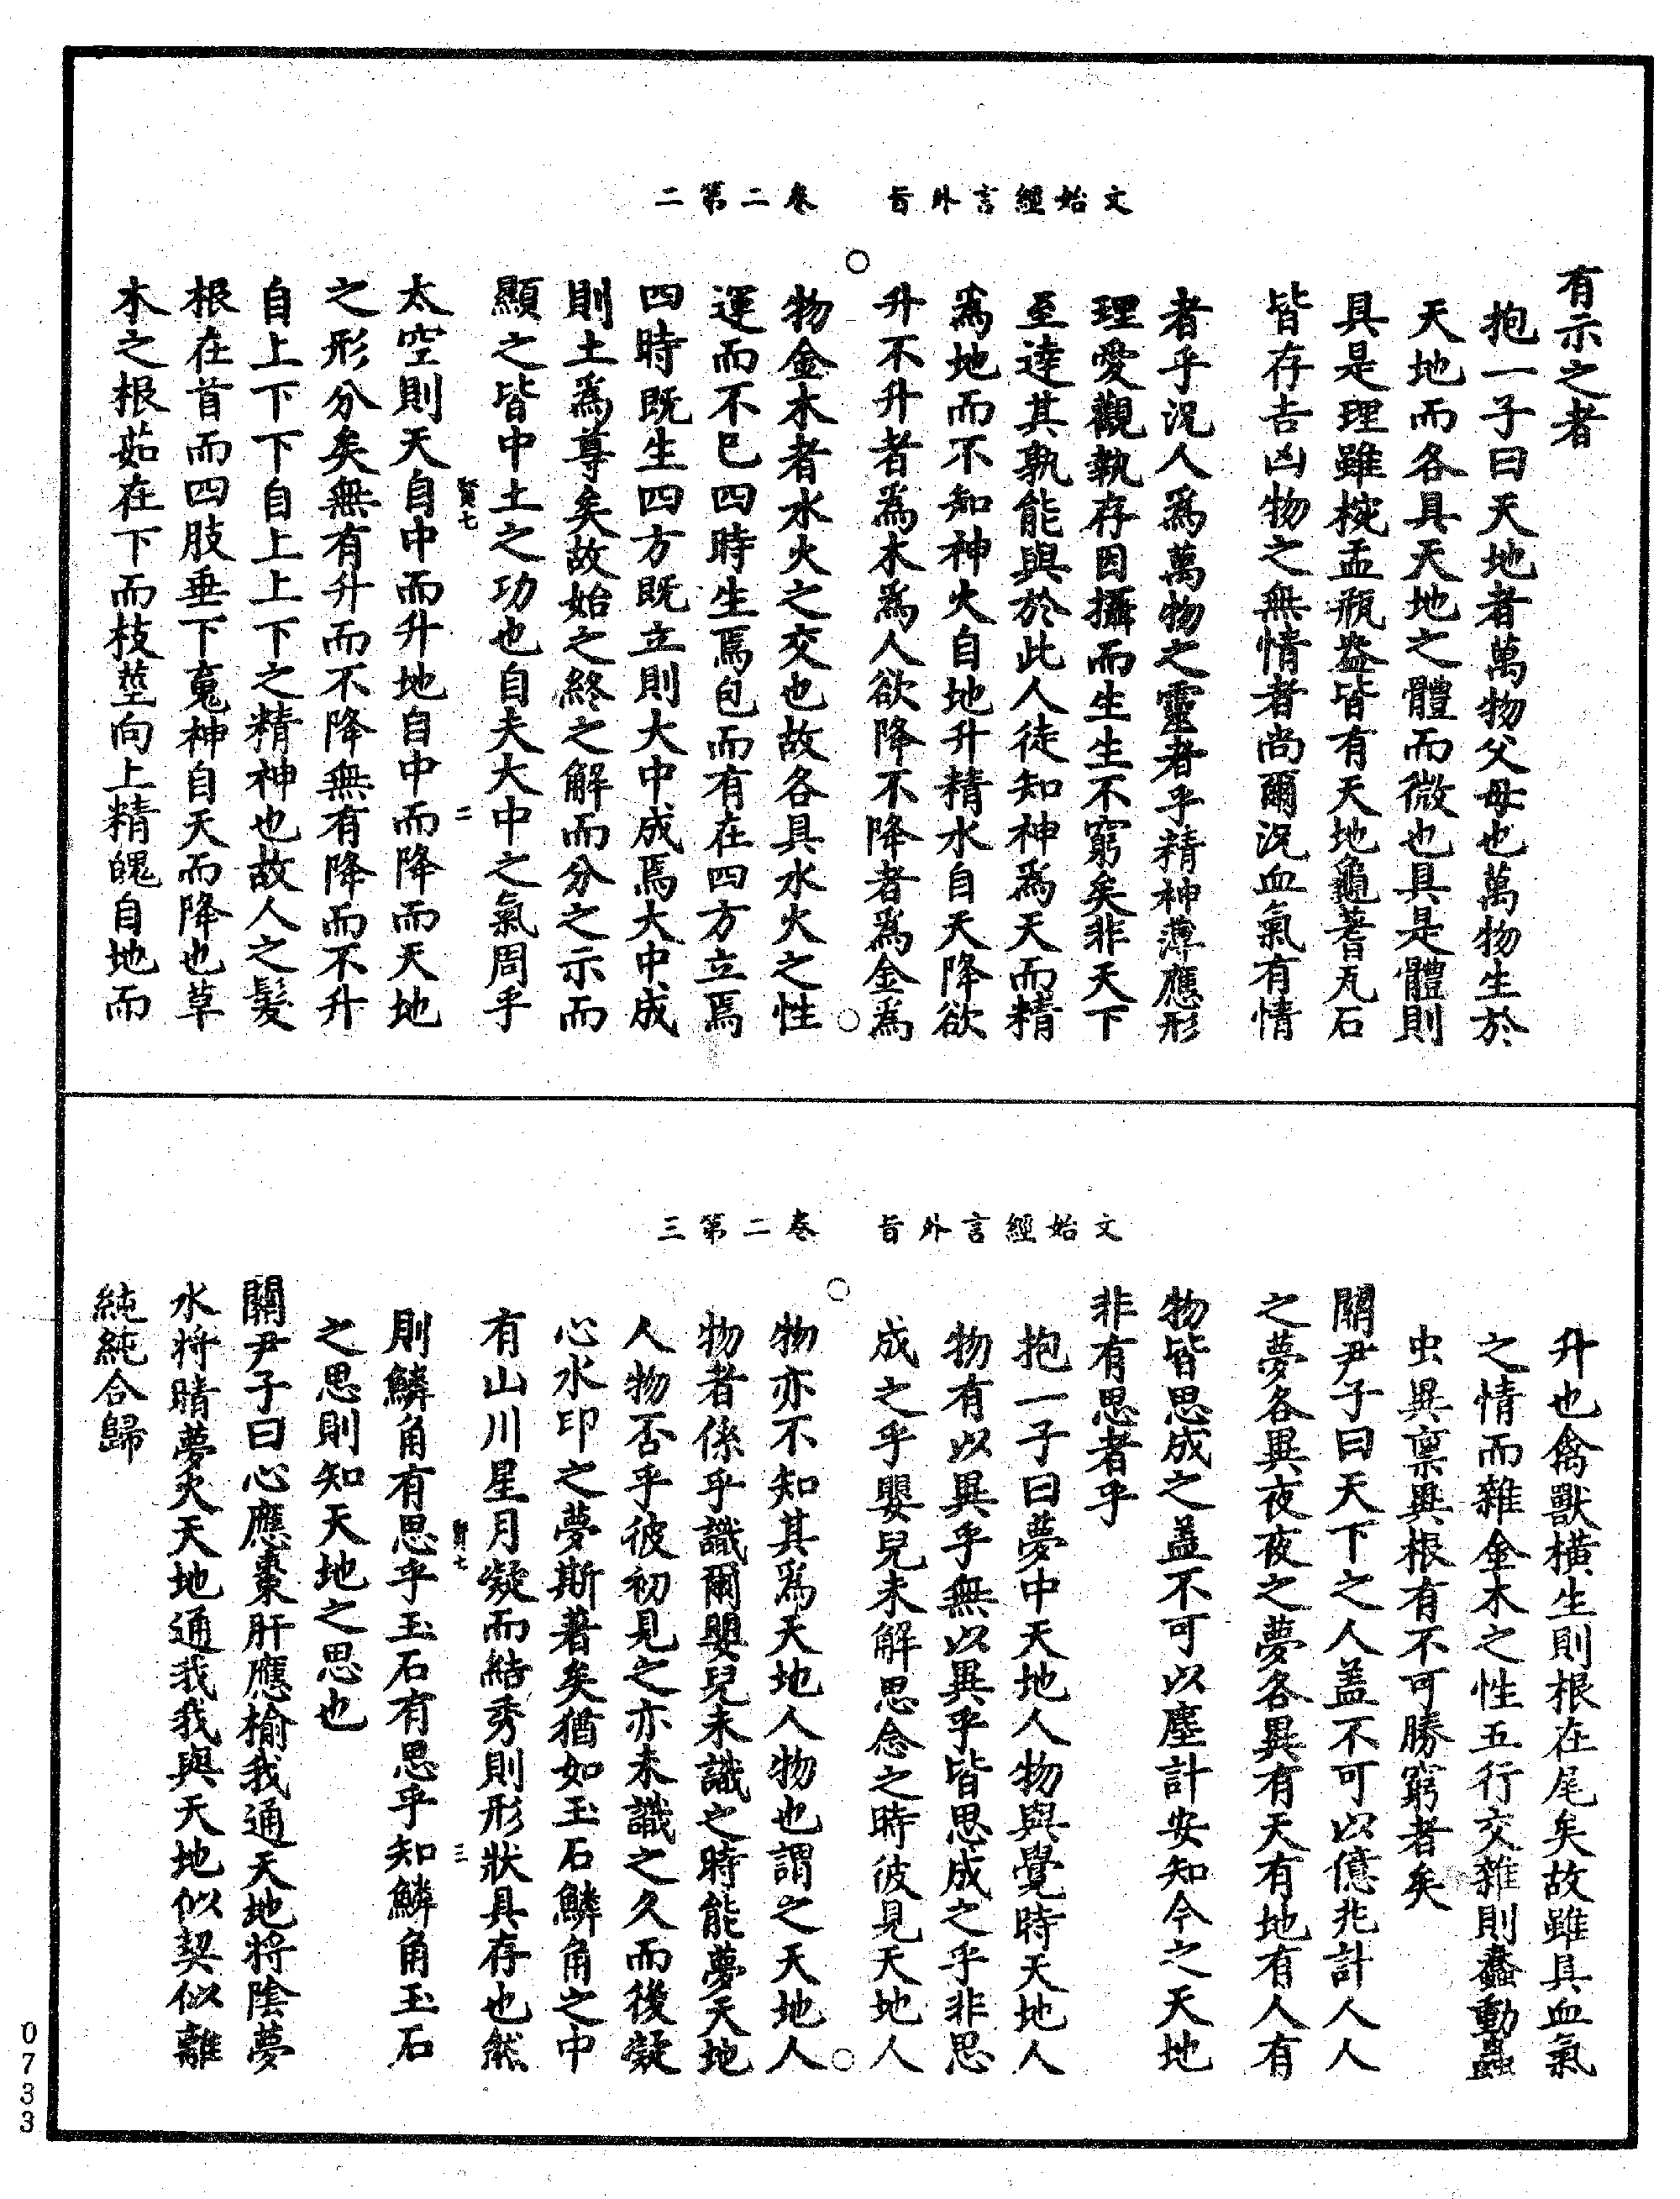 文始經言外旨　卷二第二
有示之者
抱一子曰天地者萬物父母也萬物生於
天地而各具天地之體而微也具是體則
具是理雖椀盂瓶盎皆有天地龜蓍瓦石
皆存吉凶物之無情者尚爾況血氣有情
者乎況人爲萬物之靈者乎精神薄應形
理愛觀執存因攝而生生不窮矣非天下
至達其孰能與於此人徒知神爲天而精
爲地而不知神火自地升精水自天降欲
升不升者爲木爲人欲降不降者爲金爲
物金木者水火之交也故各具水火之性
運而不已四時生焉包而有在四方立焉
四時既生四方既立則大中成焉大中成
則土爲尊矣故始之終之解而分之示而
顯之皆中土之功也自夫大中之氣周乎
賢七　二
太空則天自中而升地自中而降而天地
之形分矣無有升而不降無有降而不升
自上下下自上上下之精神也故人之髮
根在首而四肢垂下䰟神自天而降也草
木之根茹在下而枝莖向上精魄自地而
文始經言外旨　卷二第三
升也禽獸橫生則根在尾矣故雖具血氣
之情而雜金木之性五行交雜則蠢動蟲
虫異稟異根有不可勝窮者矣
關尹子曰天下之人盖不可以億兆計人人
之夢各異夜夜之夢各異有天有地有人有
物皆思成之盖不可以塵計安知今之天地
非有思者乎
抱一子曰夢中天地人物與覺時天地人
物有以異乎無以異乎皆思成之乎非思
成之乎嬰兒未解思念之時彼見天地人
物亦不知其爲天地人物也謂之天地人
物者係乎識爾嬰兒未識之時能夢天地
人物否乎彼初見之亦未識之久而後凝
心水印之夢斯著矣猶如玉石鱗角之中
有山川星月凝而結秀則形狀具存也然
賢七　三
則鱗角有思乎玉石有思乎知鱗角玉石
之思則知天地之思也
關尹子曰心應棗肝應榆我通天地將陰夢
水將晴夢火天地通我我與天地似契似離
純純合歸
0733